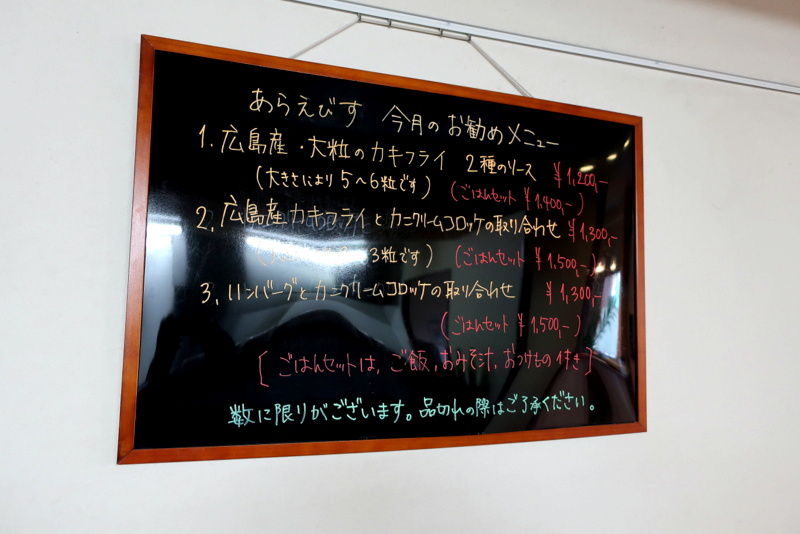 あらえびす 今月のお勧めメニュー
1. 広島産・大粒のカキフライ 2種のソース ¥1,200,-
(大きさにより5〜6粒です) (ごはんセット ¥1,400,-)
2. 広島産カキフライとカニクリームコロッケの取り合わせ ¥1,300,-
3粒です) (ごはんセット ¥1,500,-)
3. ハンバーグとカニクリームコロッケの取り合わせ ¥1,300,-
(ごはんセット ¥1,500,-)
[ごはんセットは、ご飯、おみそ汁、おつけもの付き]
数に限りがございます。品切れの際はご了承ください。